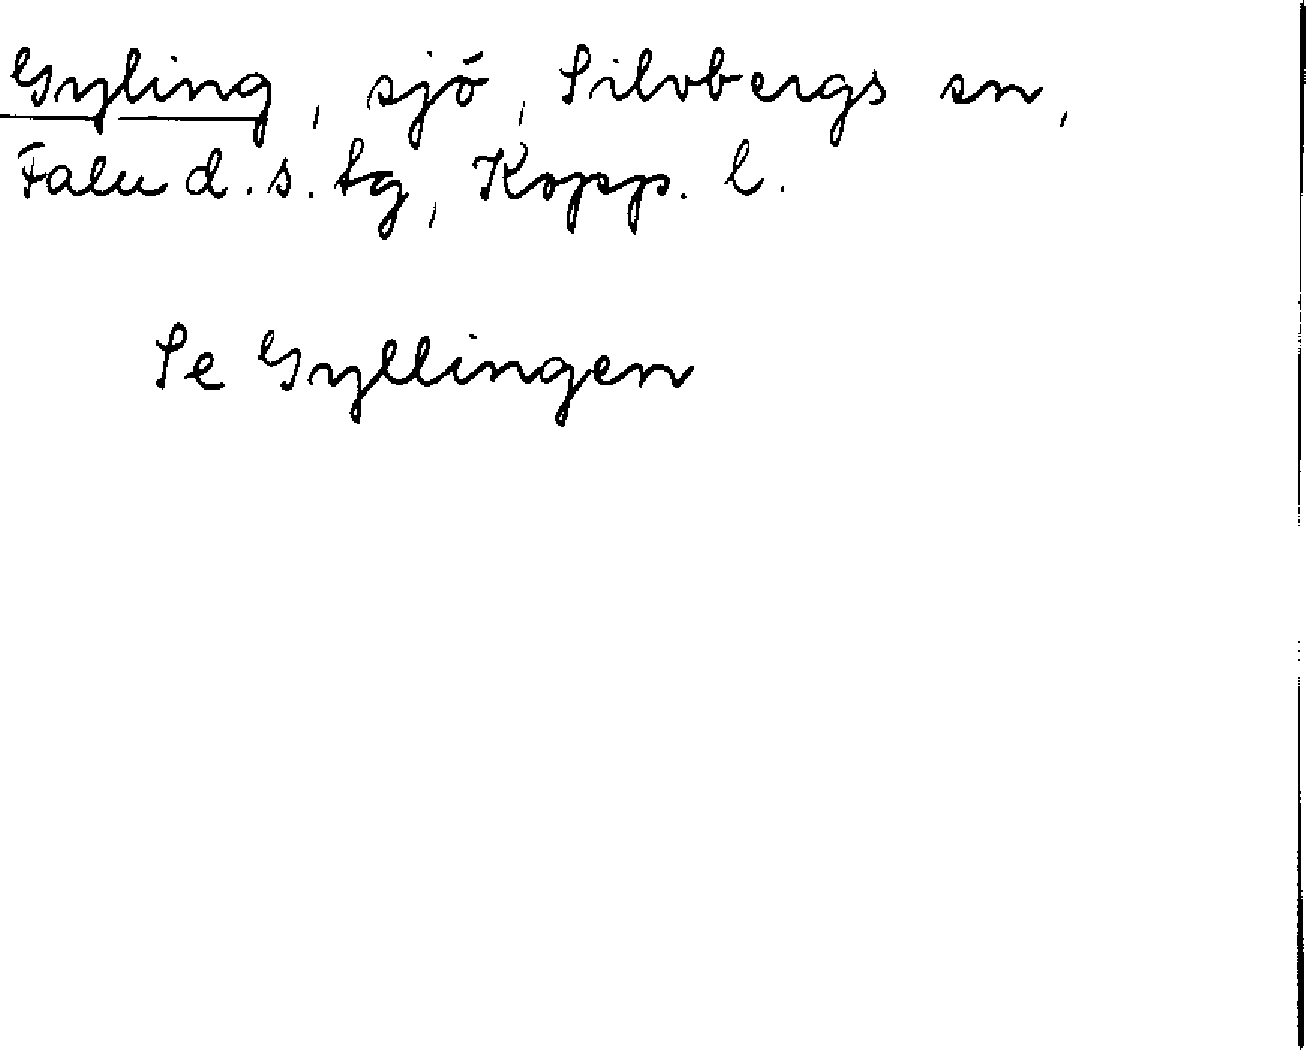 Gyling, sjö, Silvbergs sn,
Falu d.s. tg, Kopp. l.
Se Gyllingen